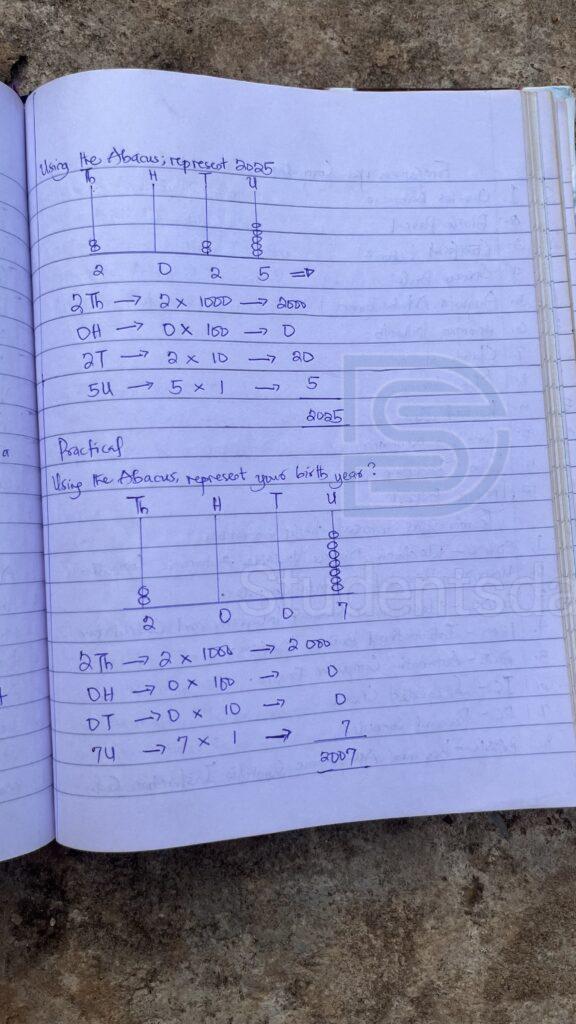 Using the Abacus; represent 2025
Th H T U
2 0 2 5 ⇒
2Th → 2 × 1000 → 2000
0H → 0 × 100 → 0
2T → 2 × 10 → 20
5U → 5 × 1 → 5
2025
Practical
Using the Abacus, represent your birth year?
Th H T U
2 0 0 7
2Th → 2 × 1000 → 2000
0H → 0 × 100 → 0
0T → 0 × 10 → 0
7U → 7 × 1 → 7
2007
Studentsda